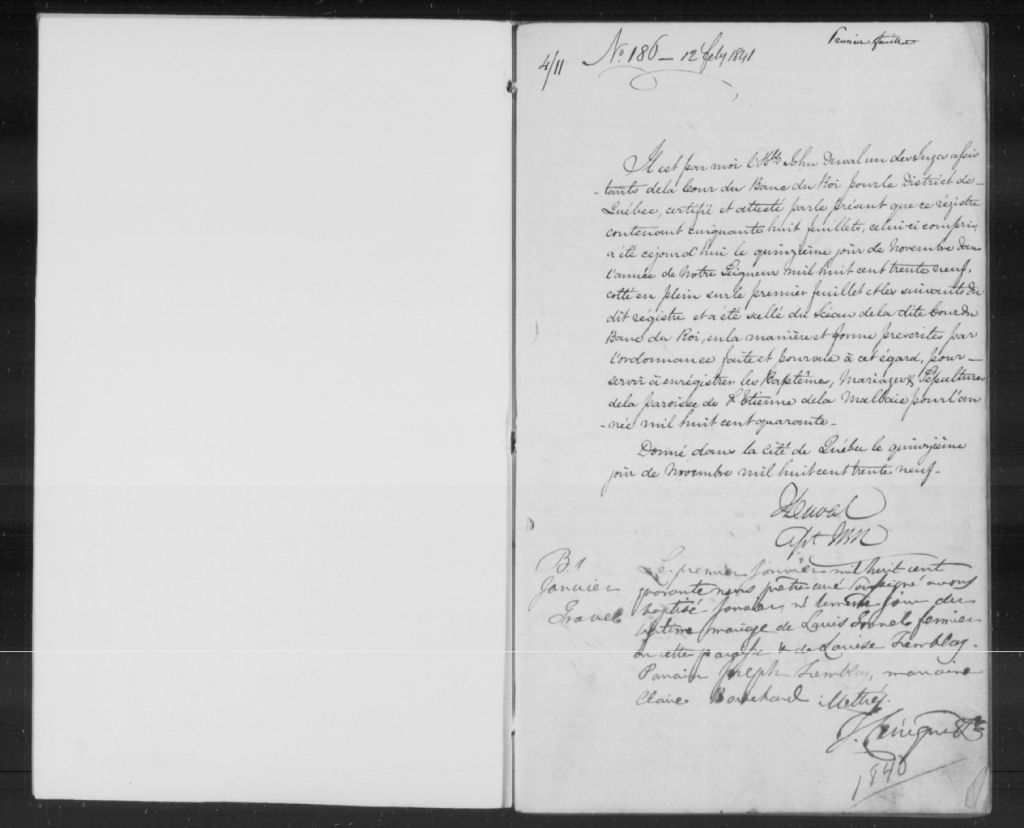 4/11
No 186 — 12 feby 1841
Premier feuillet
Il est par moi l'Hble John Duval un des Juges assis
-tants de la Cour du Banc du Roi pour le District de
Québec, certifié et attesté par le présent que ce régistre
contenant cinquante huit feuillets, celui-ci compris,
a été cejourd'hui le quinzième jour de Novembre dans
l'année de Notre Seigneur mil huit cent trente neuf,
cotté en plein sur le premier feuillet et les suivants du
dit régistre et a été scellé du Sceau de la dite Cour du
Banc du Roi, en la manière et forme prescrites par
l'ordonnance faite et pourvue à cet égard, pour
servir à enrégistrer les Baptêmes, Mariages & Sépultures
de la paroisse de St Etienne de la Malbaie pour l'an
-née mil huit cent quarante.
Donné dans la Cité de Québec le quinzième
jour de Novembre mil huit cent trente neuf.
Duval
B. 1
Janvier
Le premier Janvier mil huit cent
quarante nous prêtre curé soussigné avons
baptisé Janvier, né le jour du
légitime mariage de Louis fermier
en cette paroisse & de Louise Tremblay.
Parrain Joseph Tremblay, marraine
Claire Bouchard
1840